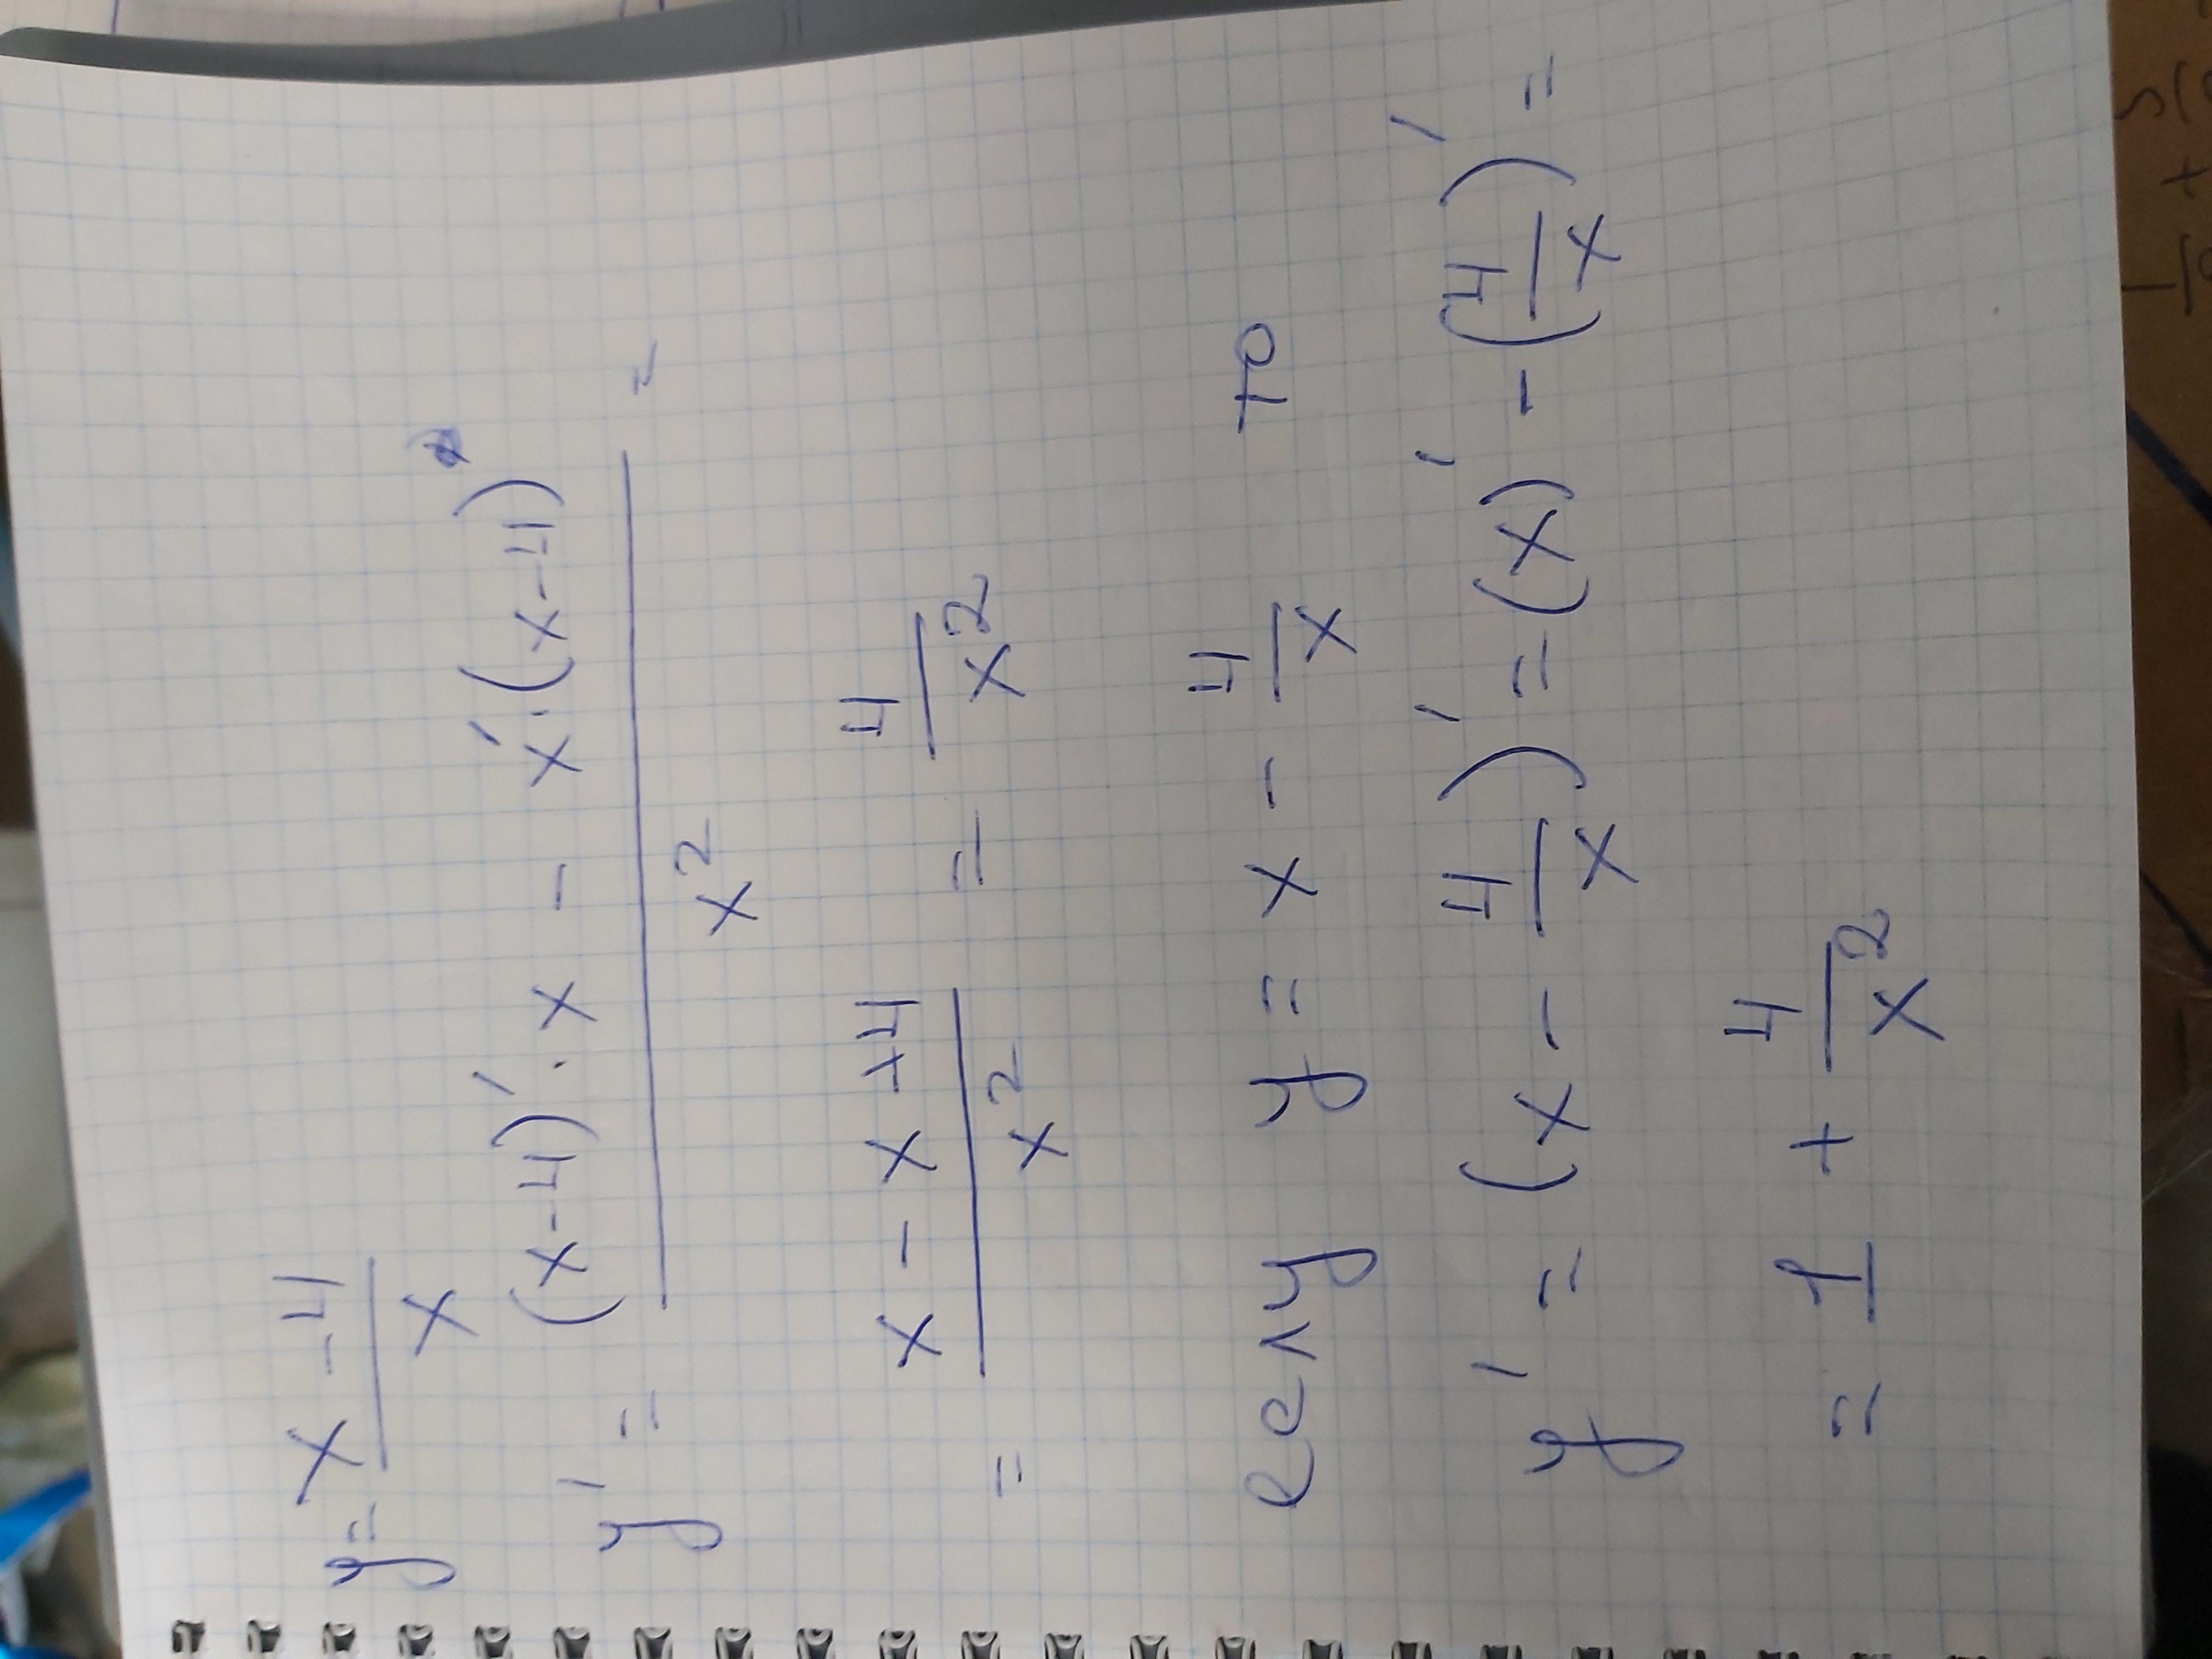 y = (x - 4)/x
y' = ((x-4)' · x - x' · (x-4))/x² =
= (x - x + 4)/x² = 4/x²
если y = x - 4/x то
y' = (x - 4/x)' = (x)' - (4/x)' =
= 1 + 4/x²